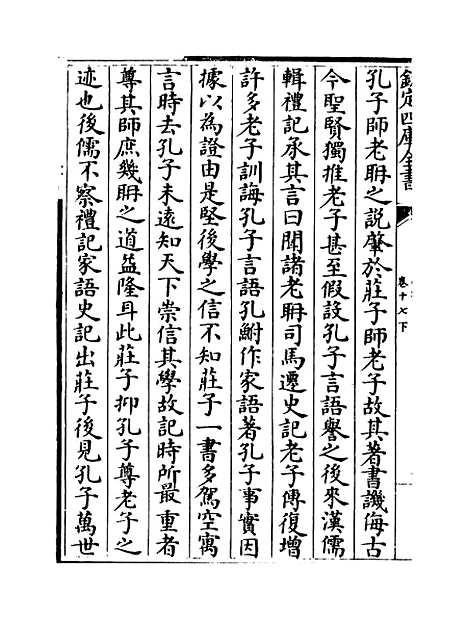 欽定四庫全書
卷十七下
孔子師老聃之說肇於莊子師老子故其著書譏侮古
今聖賢獨推老子甚至假設孔子言語譽之後來漢儒
輯禮記承其言曰聞諸老聃司馬遷史記老子傳復增
許多老子訓誨孔子言語孔鮒作家語著孔子事實因
據以為證由是堅後學之信不知莊子一書多駕空寓
言時去孔子未遠知天下崇信其學故記時所最重者
尊其師庶幾聃之道益隆耳此莊子抑孔子尊老子之
迹也後儒不察禮記家語史記出莊子後見孔子萬世